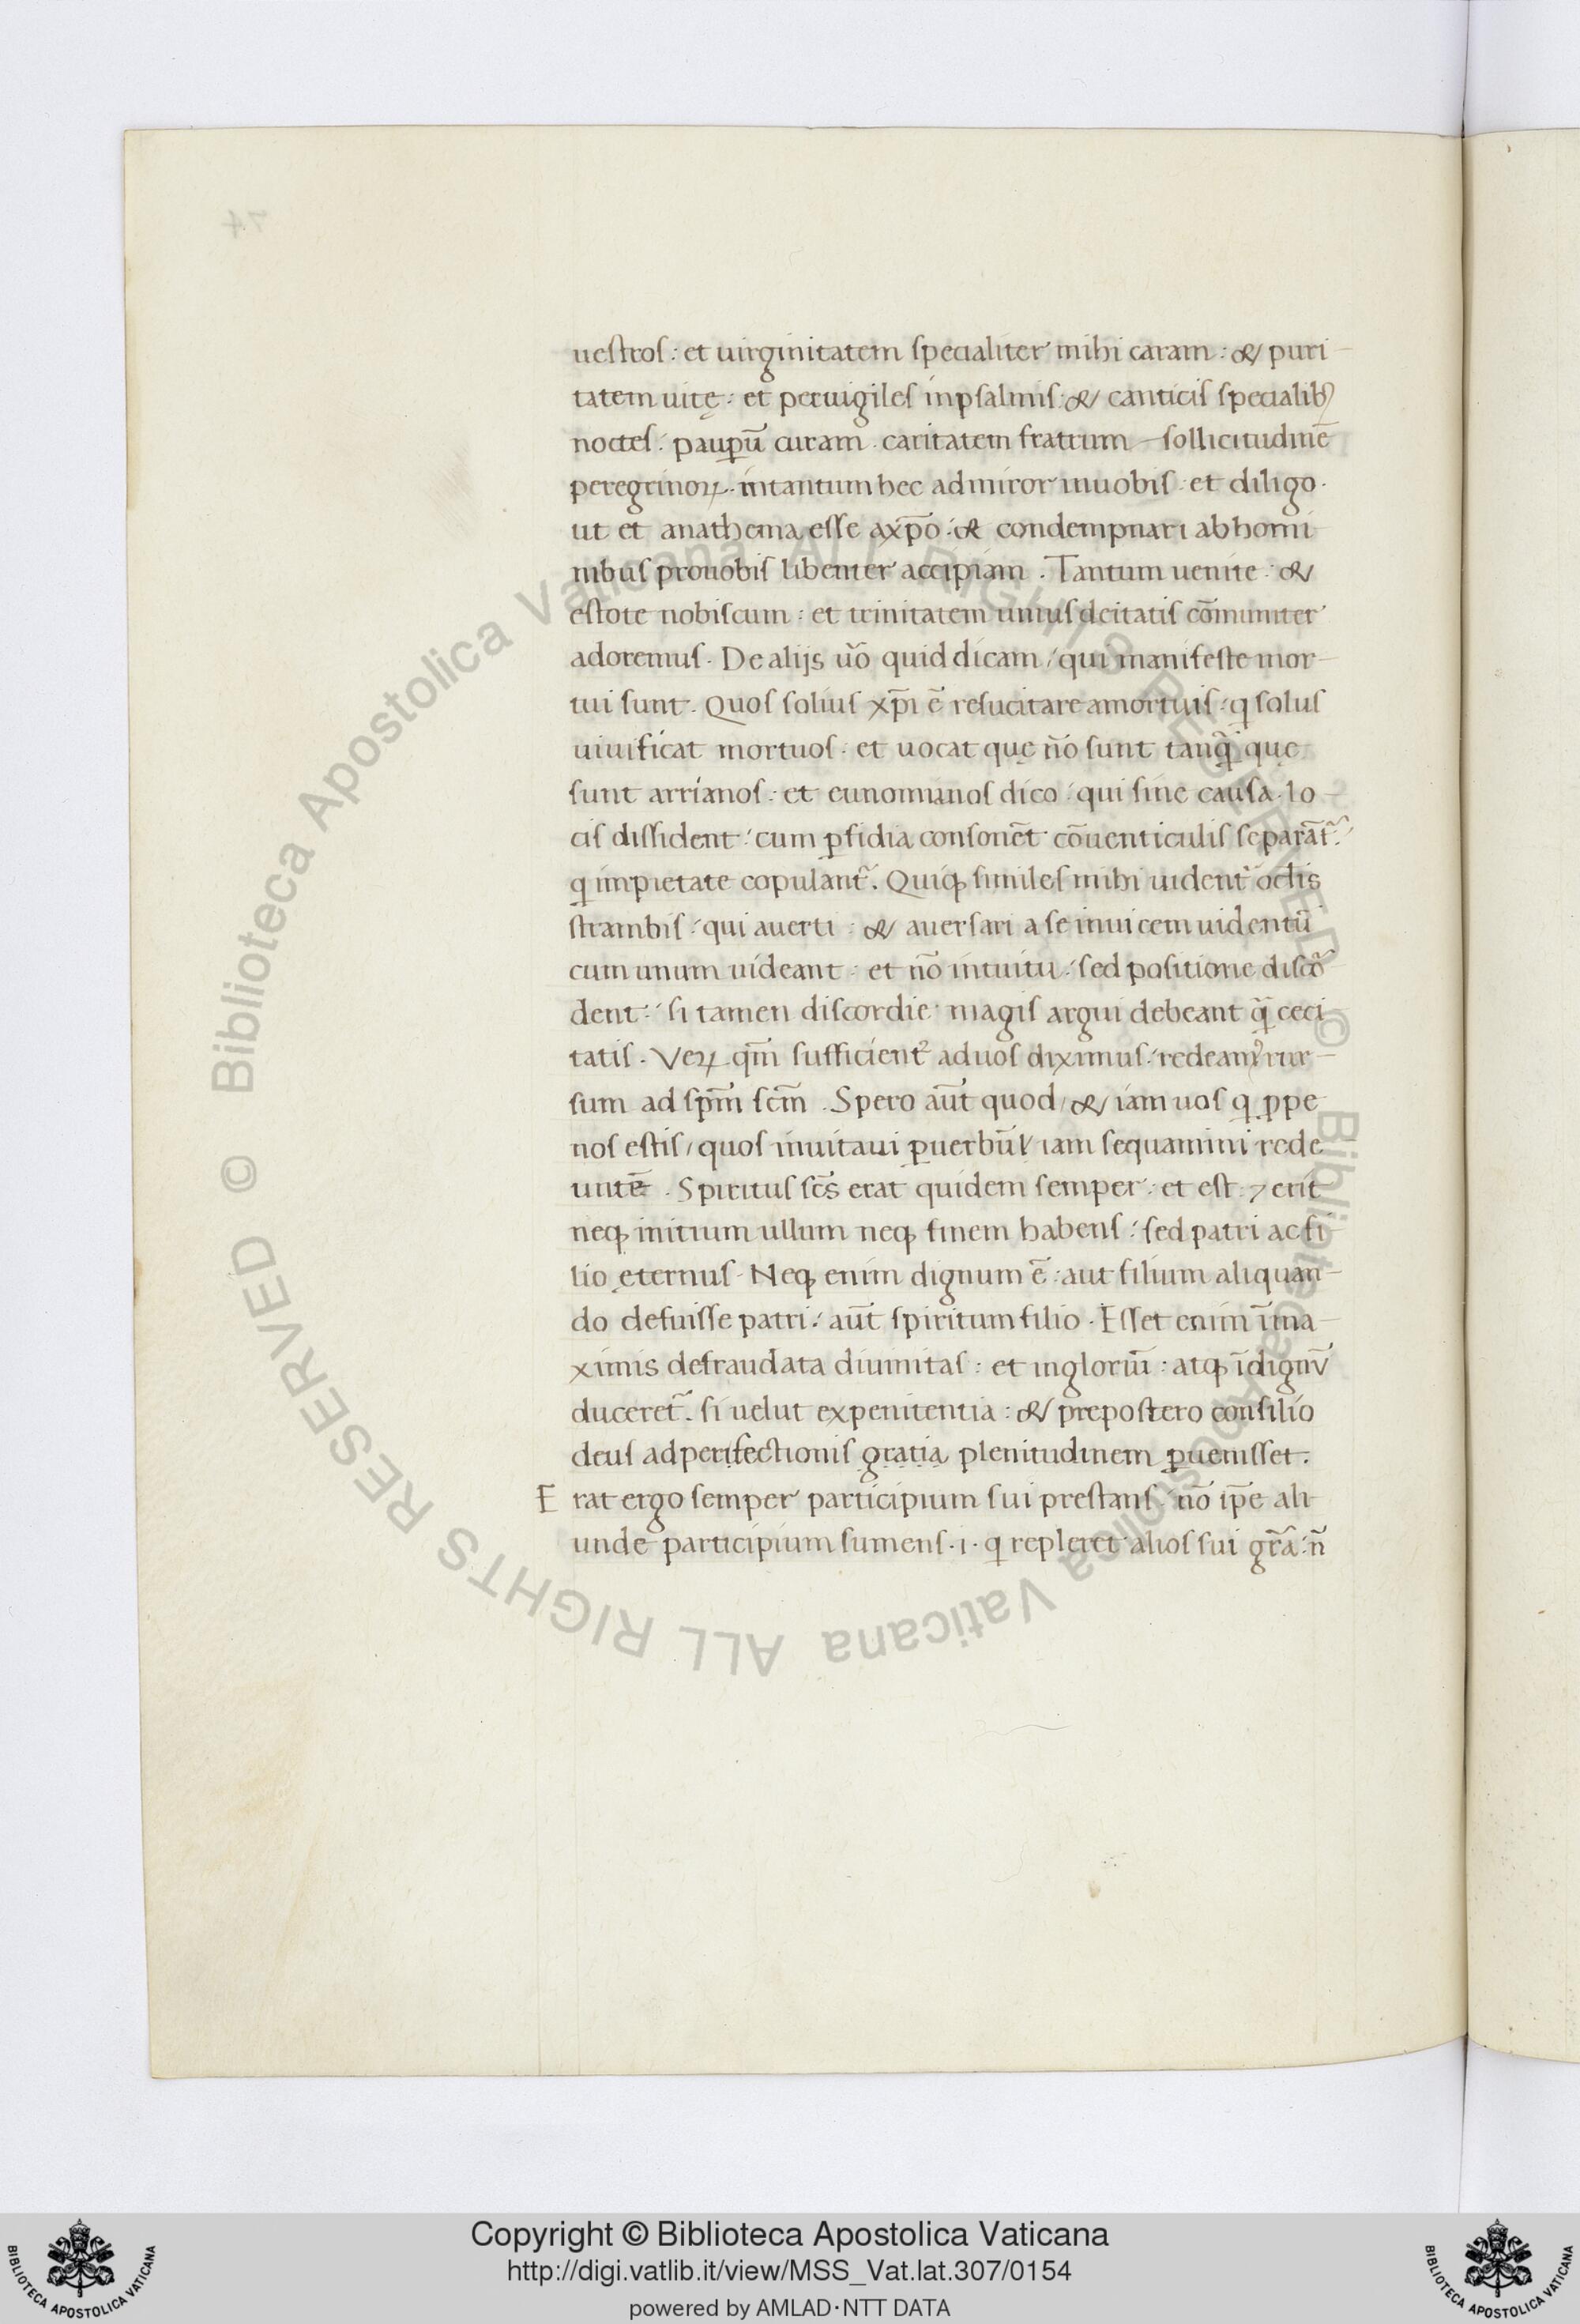 uestros : et uirginitatem specialiter mihi caram : & puri-
tatem uitę : et peruigiles inpsalmis : & canticis specialibꝰ
noctes : paupū curam . caritatem fratrum - sollicitudinē
peregrinoꝝ . intantum hec admiror inuobis : et diligo .
ut et anathema esse axp̄o : & condempnari ab homi
nibus prouobis libenter accipiam . Tantum uenite : &
estote nobiscum : et trinitatem unius deitatis cōmuniter
adoremus . De alijs ūo quid dicam / qui manifeste mor-
tui sunt . Quos solius xp̄i ē resucitare amortuis : q solus
uiuificat mortuos : et uocat quę nō sunt tanq̄ quę
sunt arrianos : et eunomianos dico : qui sine causa . lo-
cis dissident : cum ꝑfidia consonēt cōuenticulis separāt᷑ :
q impietate copulant᷑ . Quiqꝫ similes mihi uident᷑ oclis
strambis : qui auerti : & auersari a se inuicem uidentū
cum unum uideant : et nō intuitu : sed positione discō
dent : si tamen discordie magis argui debeant q̄ ceci
tatis . Veꝝ qm̄ sufficient᷑ aduos diximus : redeamꝰ rur-
sum ad sp̄m sc̄m . Spero aūt quod / & iam uos q ꝓpe
nos estis / quos inuitaui ꝑuerbū / iam sequamini rede
untē . Spiritus sc̄s erat quidem semper : et est : ⁊ erit
neqꝫ initium ullum neqꝫ finem habens : sed patri ac fi-
lio ęternus . Neqꝫ enim dignum ē : aut filium aliquan-
do defuisse patri : aūt spiritum filio . Esset enim īma-
ximis defraudata diuinitas : et ingloriū : atqꝫ īdignū
duceret᷑ . si uelut expenitentia : & prepostero consilio
deus ad perifectionis gratia plenitudinem ꝑuenisset .
E rat ergo semper participium sui prestans : nō ip̄e ali
unde participium sumens . i . q repleret alios sui gr̄a : n̄
74
© Biblioteca Apostolica Vaticana ALL RIGHTS RESERVED © Biblioteca Apostolica Vaticana ALL RIGHTS RESERVED
Copyright © Biblioteca Apostolica Vaticana
http://digi.vatlib.it/view/MSS_Vat.lat.307/0154
powered by AMLAD·NTT DATA
BIBLIOTECA APOSTOLICA VATICANA
BIBLIOTECA APOSTOLICA VATICANA